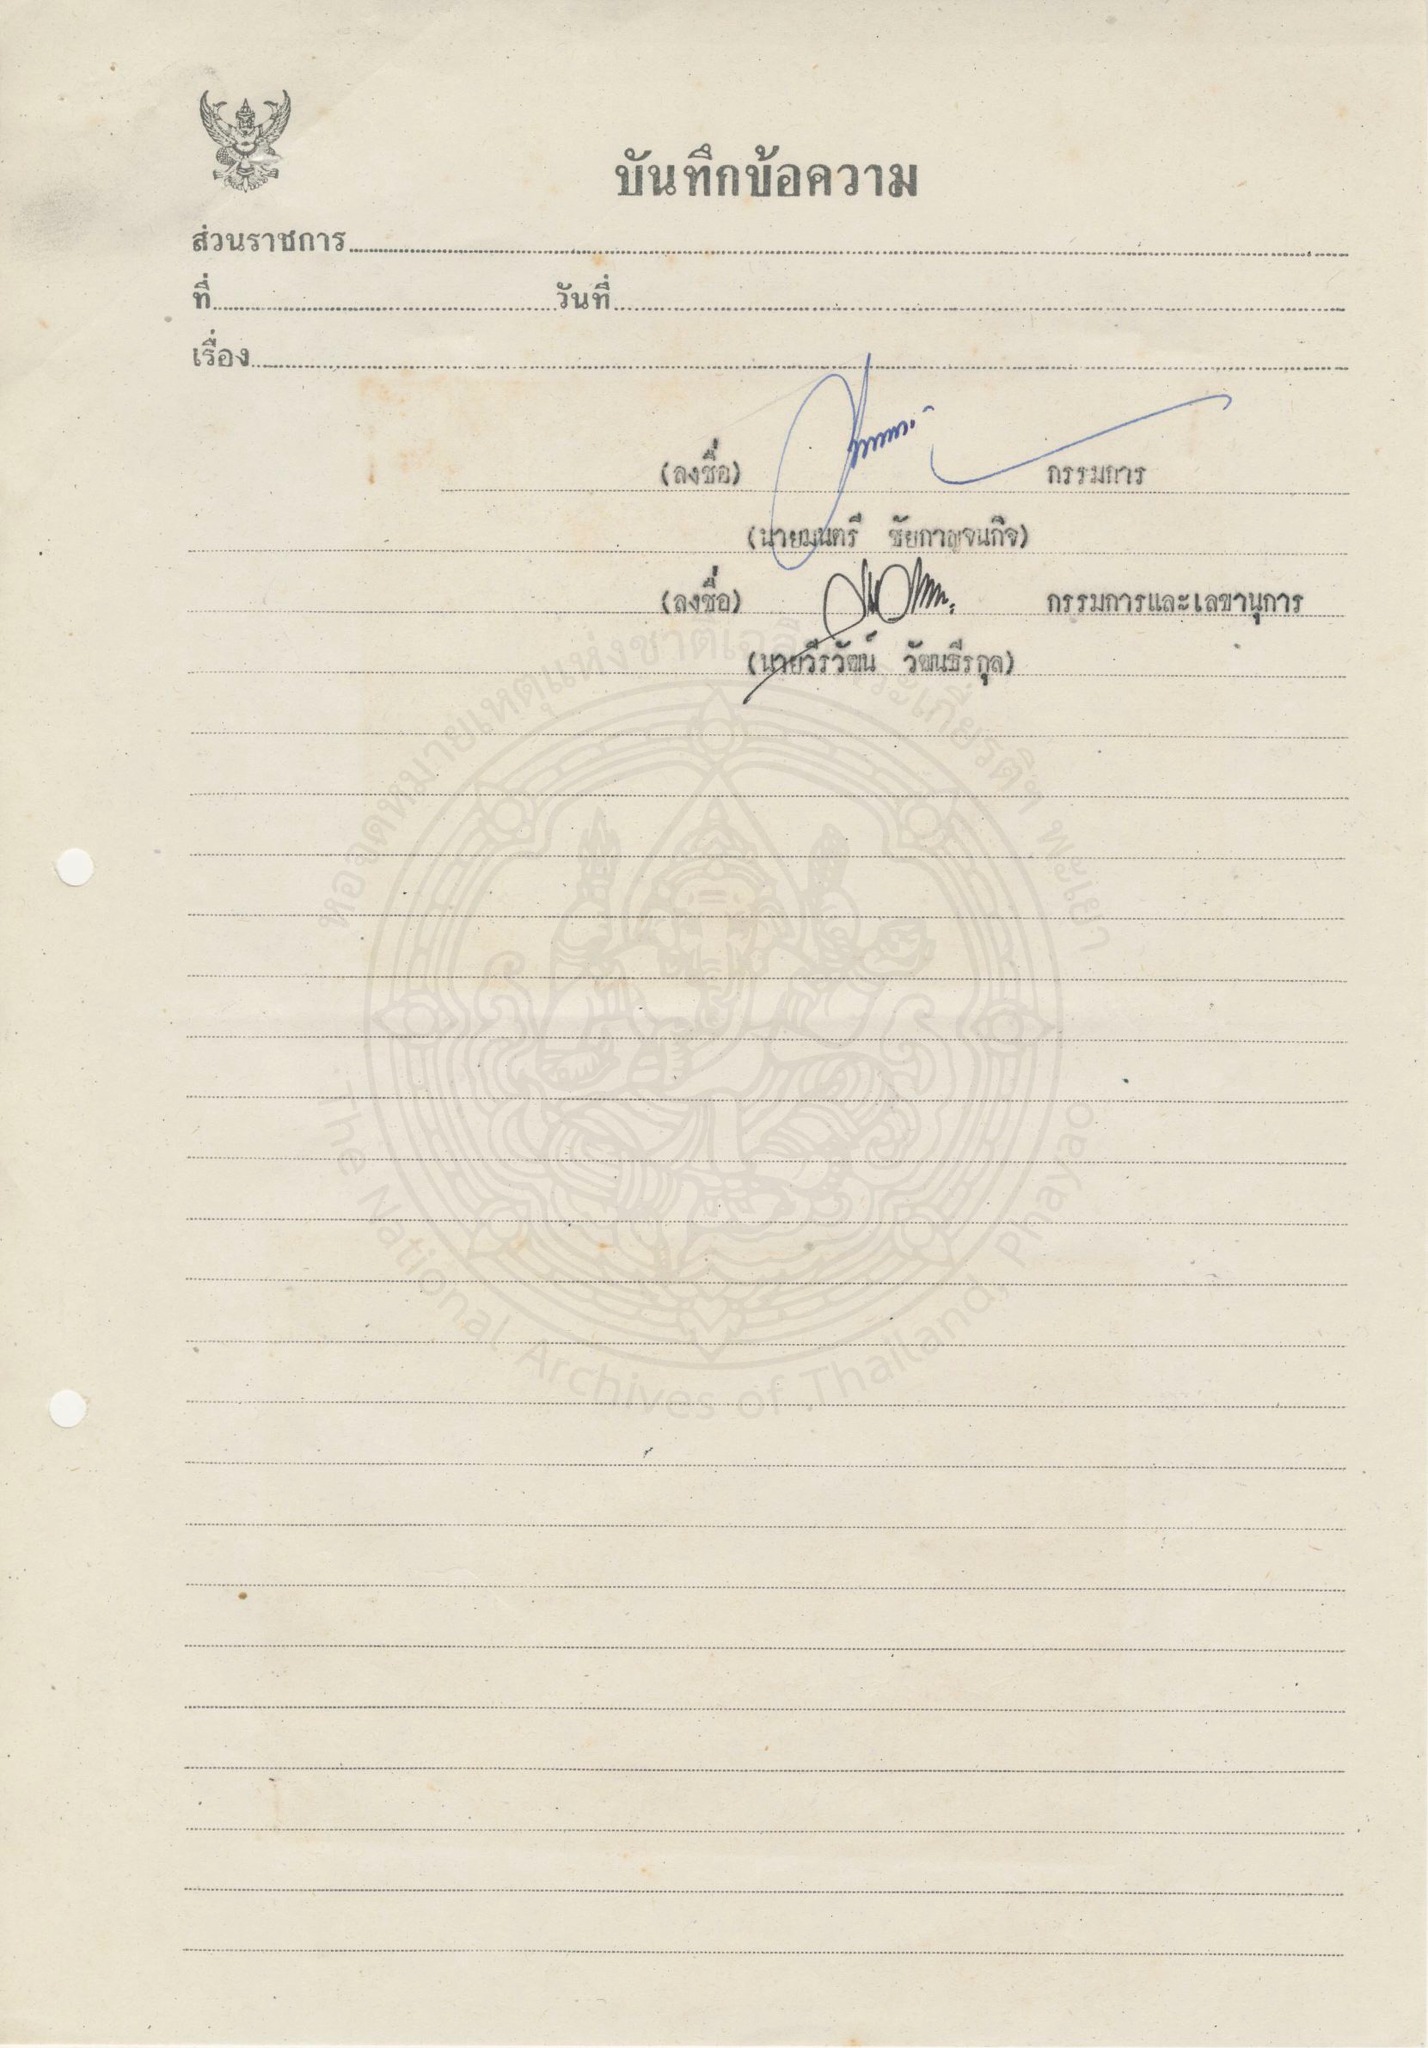 บันทึกข้อความ
ส่วนราชการ
ที่ วันที่
เรื่อง
(ลงชื่อ) กรรมการ
(นายมนตรี ชัยกาญจนกิจ)
(ลงชื่อ) กรรมการและเลขานุการ
(นายวีรวัฒน์ วัฒนธีรกุล)
หอจดหมายเหตุแห่งชาติเฉลิมพระเกียรติฯ พะเยา
The National Archives of Thailand, Phayao